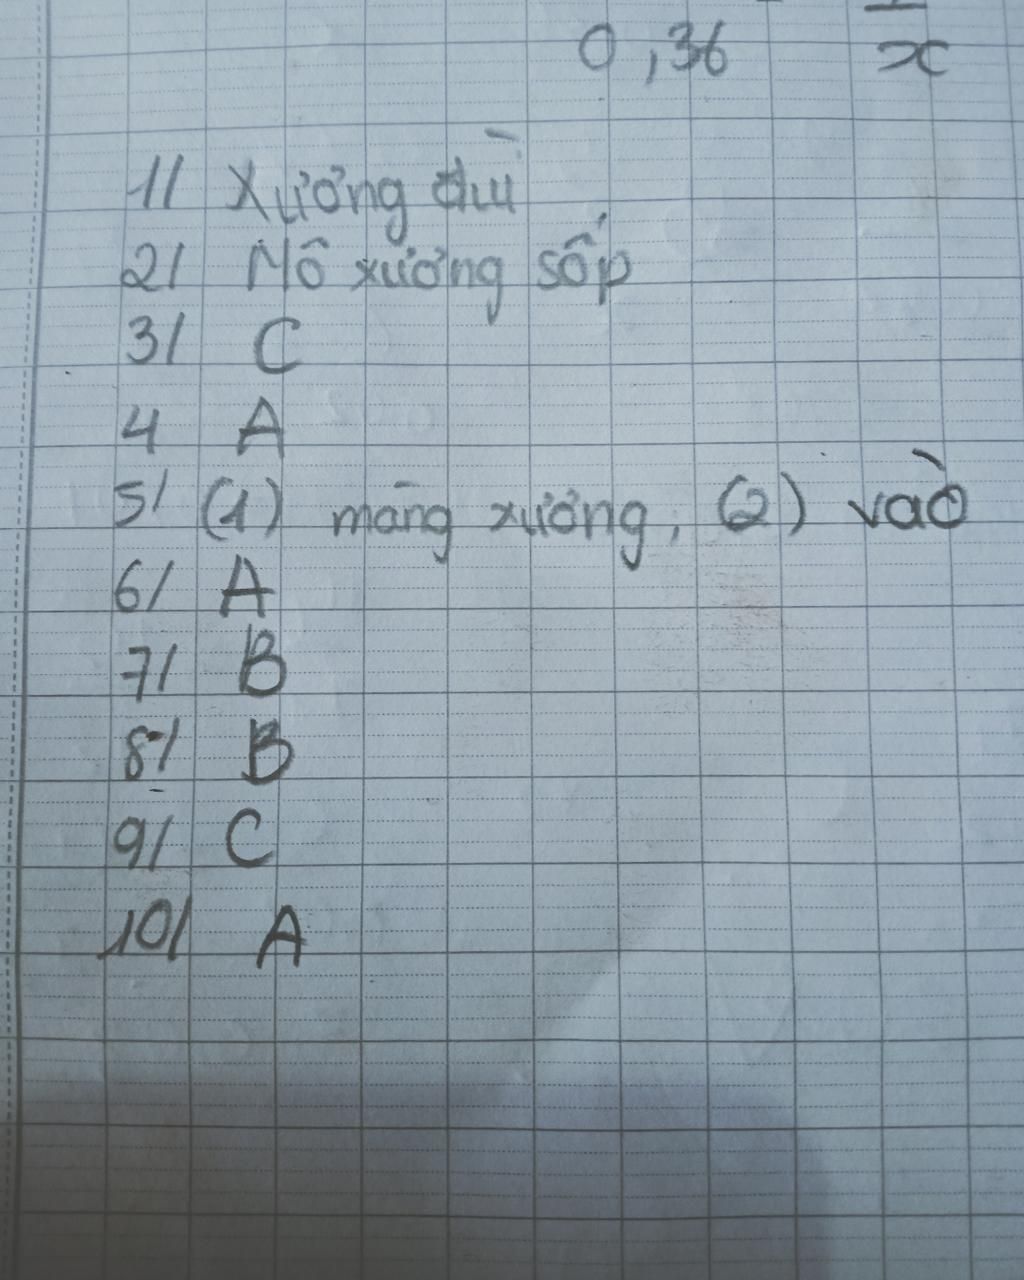 0,36 x
1/ Xương đùi
2/ Mô xương sốp
3/ C
4 A
5/ (1) màng xương, (2) vào
6/ A
7/ B
8/ B
9/ C
10/ A